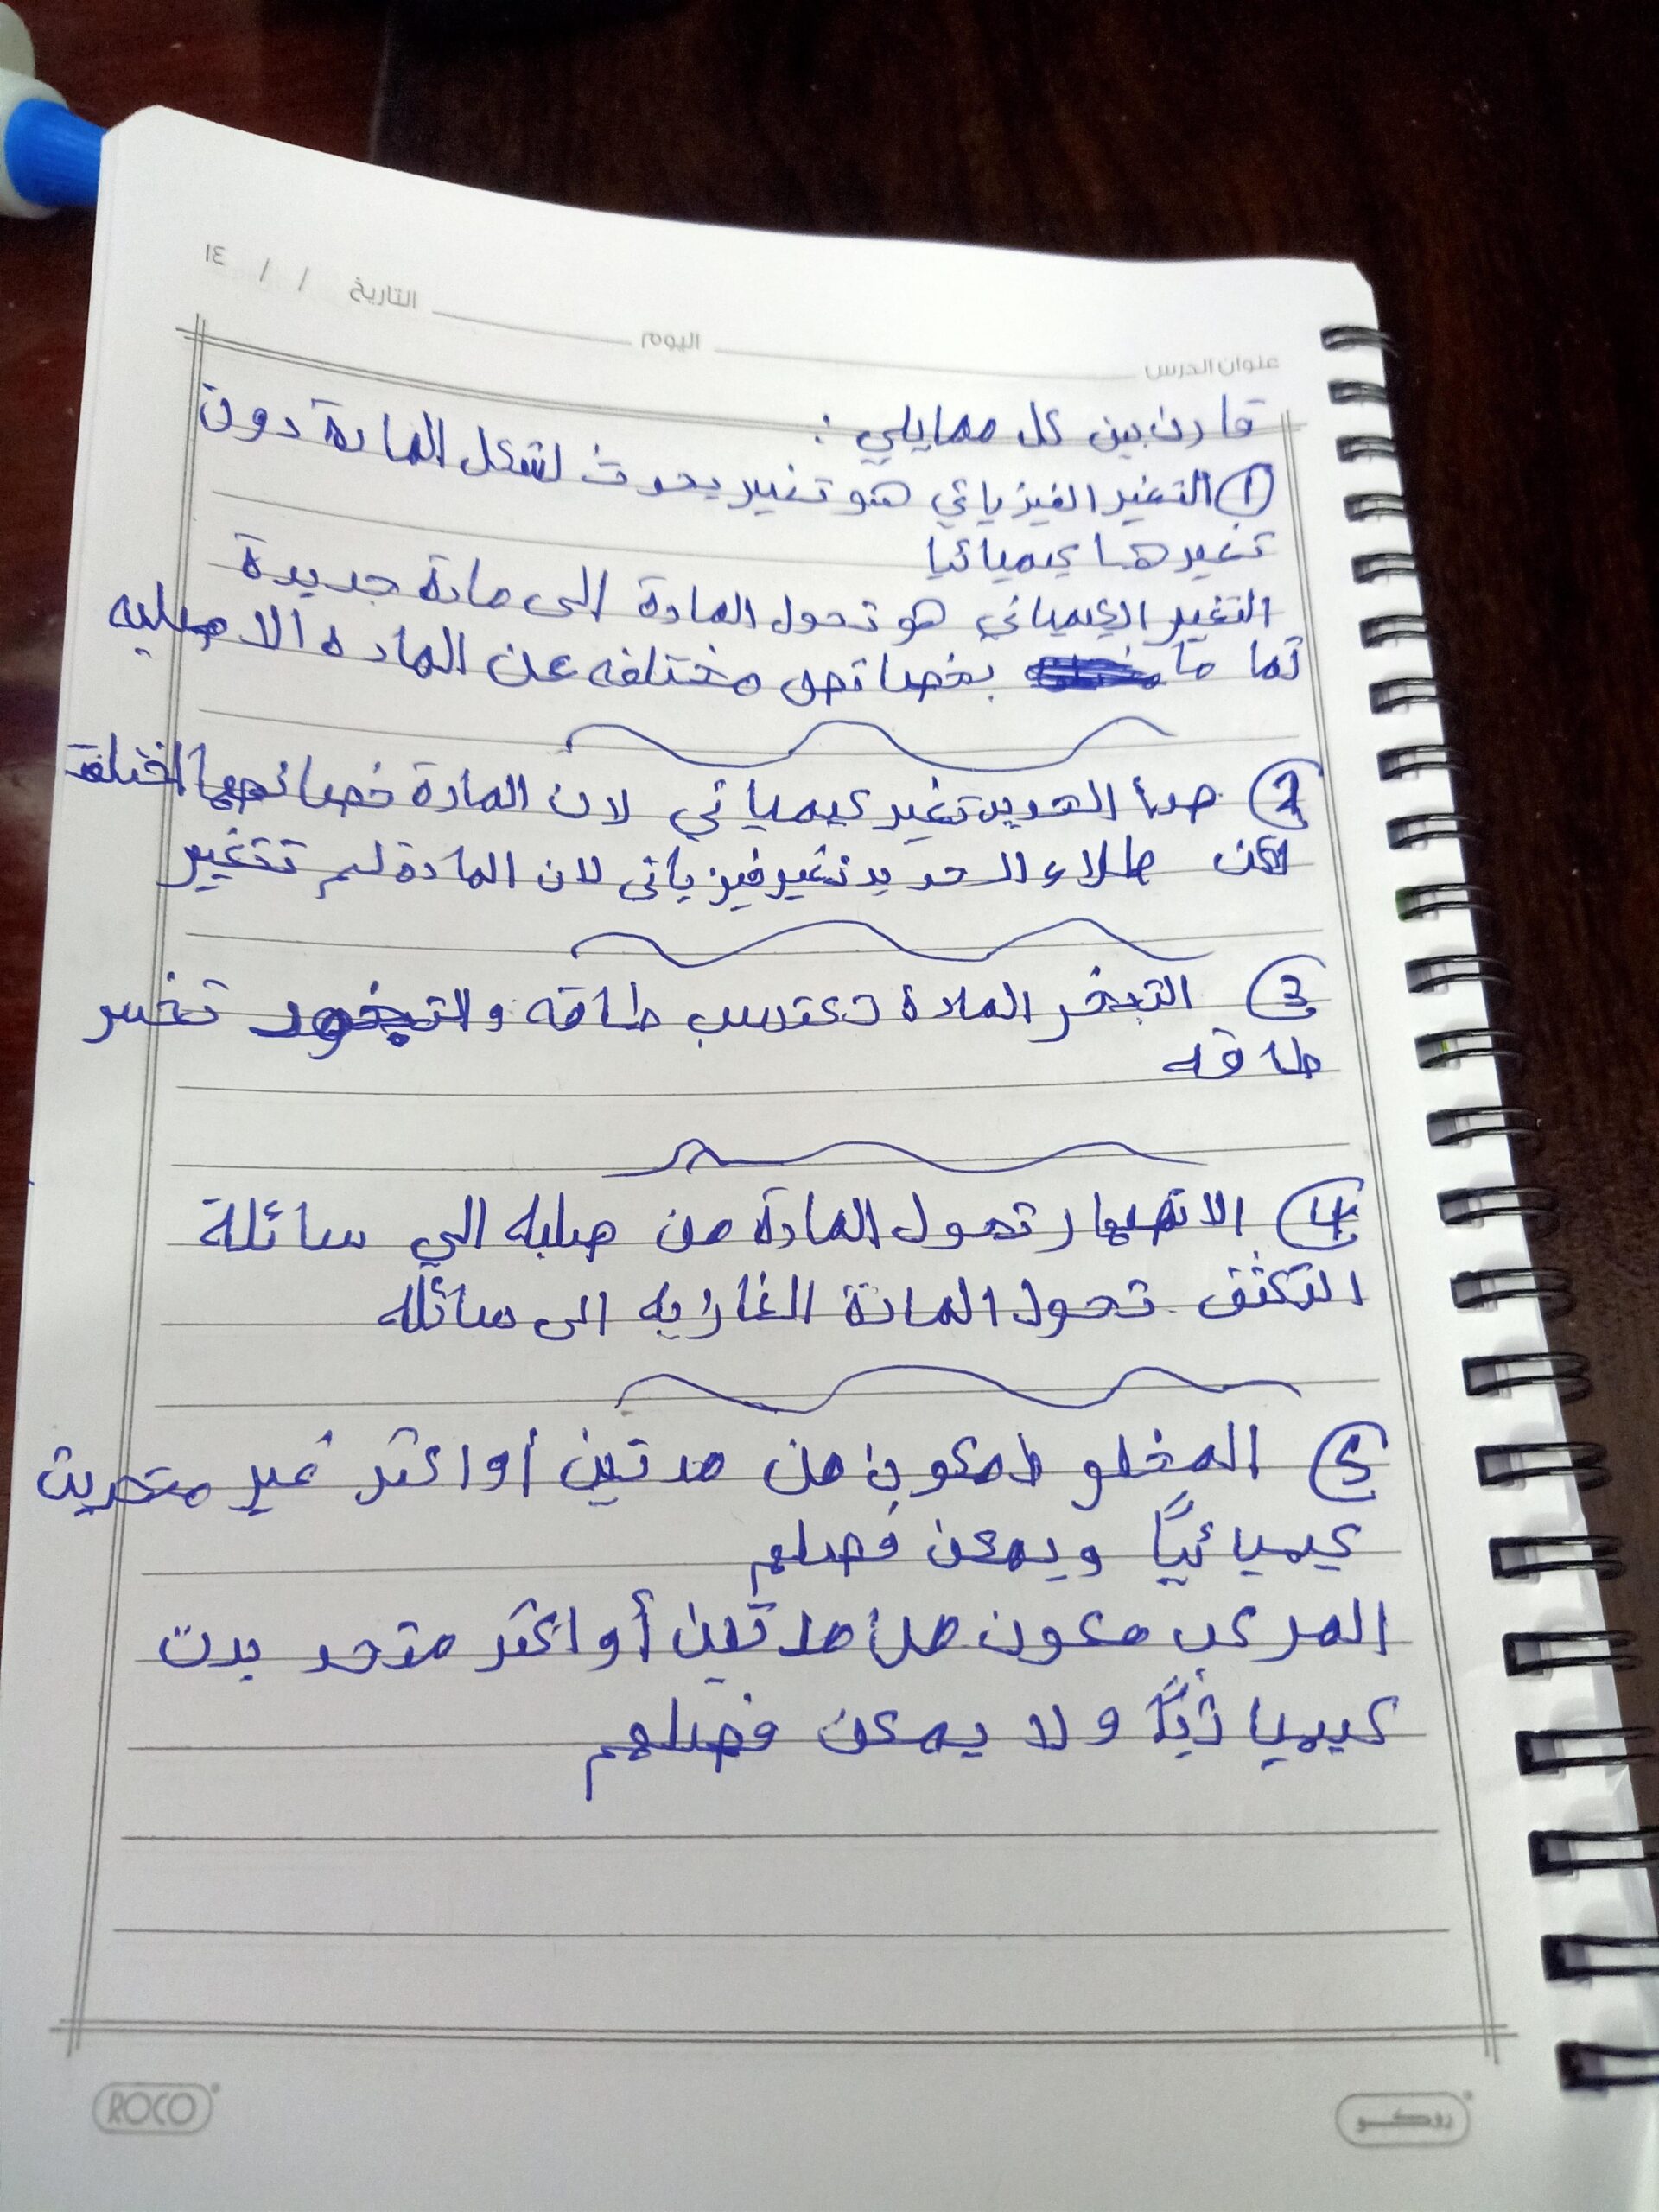 عنوان الدرس اليوم التاريخ / / ١٤
قارن بين كل ممايلي :
① التغير الفيزيائي هو تغير يحدث لشكل المادة دون
تغيرها كيميائيا
التغير الكيميائي هو تحول المادة الى مادة جديدة
تماما بخصائص مختلفه عن الماده الاصليه
② صدأ الحديد تغير كيميائي لان المادة خصائصهما اختلفت
لكن طلاء الحديد تغير فيزيائي لان المادة لم تتغير
③ التبخر المادة تكتسب طاقه والتجمد تخسر
طاقه
④ الانصهار تحول المادة من صلبه الي سائلة
التكثف تحول المادة الغازيه الى سائله
⑤ المخلوط مكون من مدتين أو اكثر غير متحدين
كيميائيًا ويمكن فصلهم
المركب مكون من مدتين أو اكثر متحد يدن
كيميائيًا ولا يمكن فصلهم
ROCO روكو